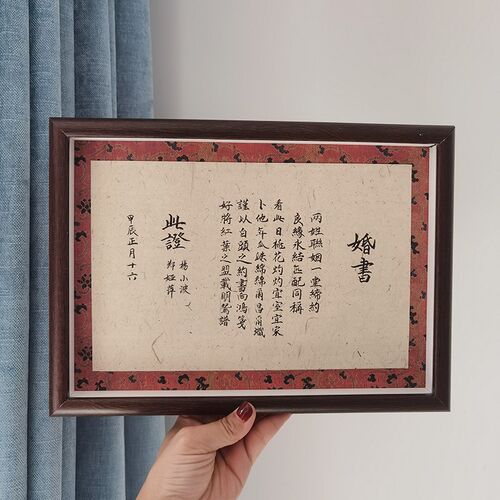 婚書
兩姓聯姻一堂締約
良緣永結匹配同稱
看此日桃花灼灼宜室宜家
卜他年瓜瓞綿綿爾昌爾熾
謹以白頭之約書向鴻箋
好將紅葉之盟載明鴛譜
此證
楊小波
鄭婭萍
甲辰正月十六